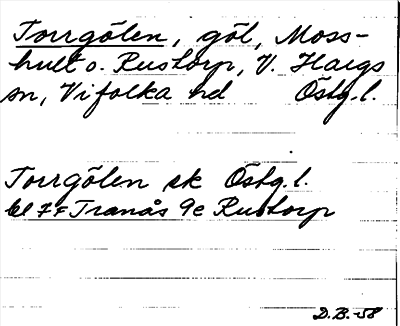 Torrgölen, göl, Moss-
hult o. Rustorp, V. Hargs
sn, Vifolka hd Östg.l.
Torrgölen sk Östg.l.
bl 7F Tranås 9e Rustorp
D.B.-58